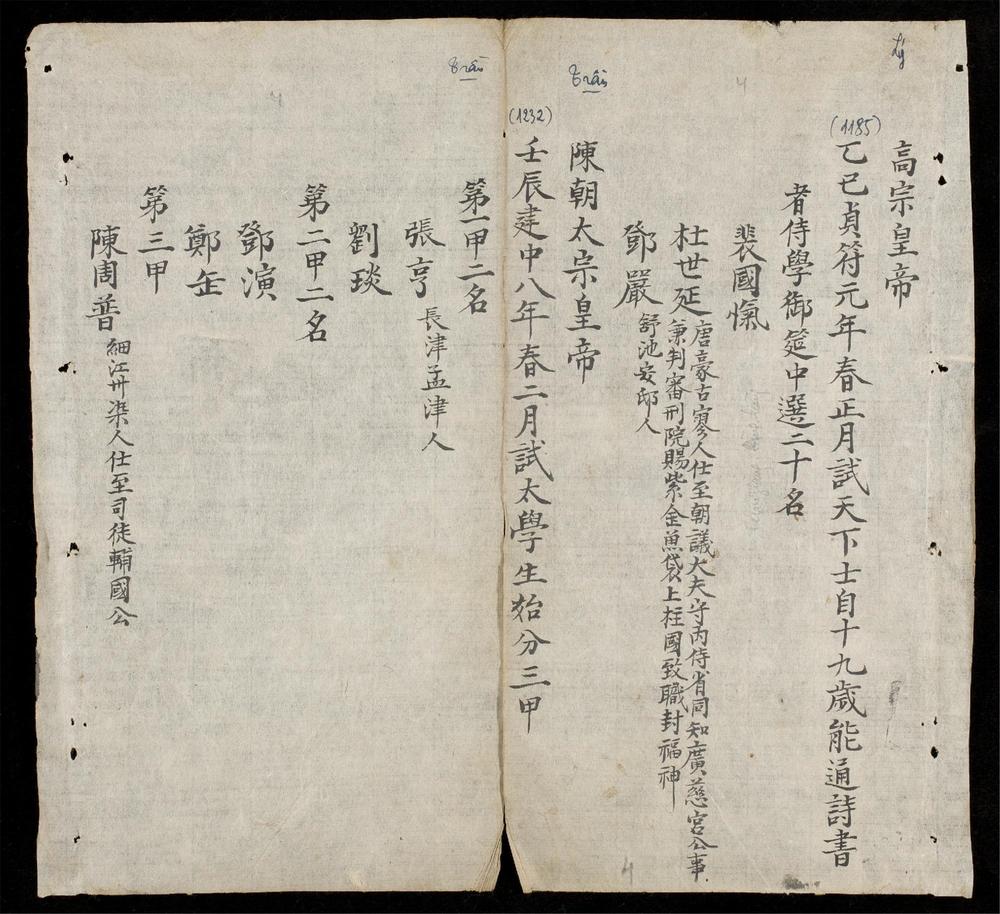 Lý
高宗皇帝
(1185)
乙巳貞符元年春正月試天下士自十九歲能通詩書
者侍學御筵中選二十名
裴國愾
杜世延
唐豪古寥人仕至朝議大夫守內侍省同知廣慈宮公事
兼判審刑院賜紫金魚袋上柱國致職封福神
鄧嚴 舒池安邸人
Trần
陳朝太宗皇帝
(1232)
壬辰建中八年春二月試太學生始分三甲
Trần
第一甲二名
張亨 長津孟津人
劉琰
第二甲二名
鄧演
鄭缶
第三甲
陳周普 細江丗柒人仕至司徒輔國公
4
4
4